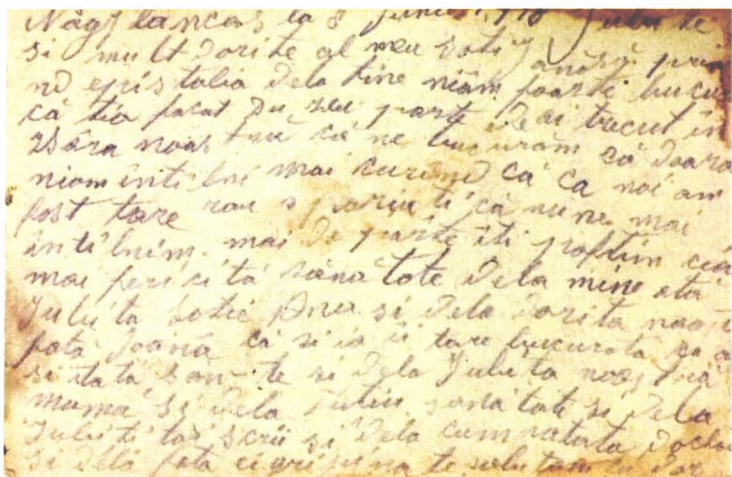 Nagylancas la 8 Juni 1918 Jubite
si mult dorite al meu soti
nd epistolia dela tine niam foarti bucu
că tia facut Du zeu parte deai trecut in
zsăra noas tră că ne bucurăm că doara
niom intilni mai curund că ca noi am
fost tare rau spariiti că nu ne mai
intilnim. mai de parte iti poftim cea
mai feri ci tă sănă tote dela mine ata
Jubi ta sotie Ana si dela dorita noas
fată Joană că si ia ii tare bucurată că a
si tată sănă te si dela Jubi ta noas tră
mamă si dela sana tati si dela
Jubiti tai scrii si dela cumnatata dochia
si dela fata te salutam cu dor